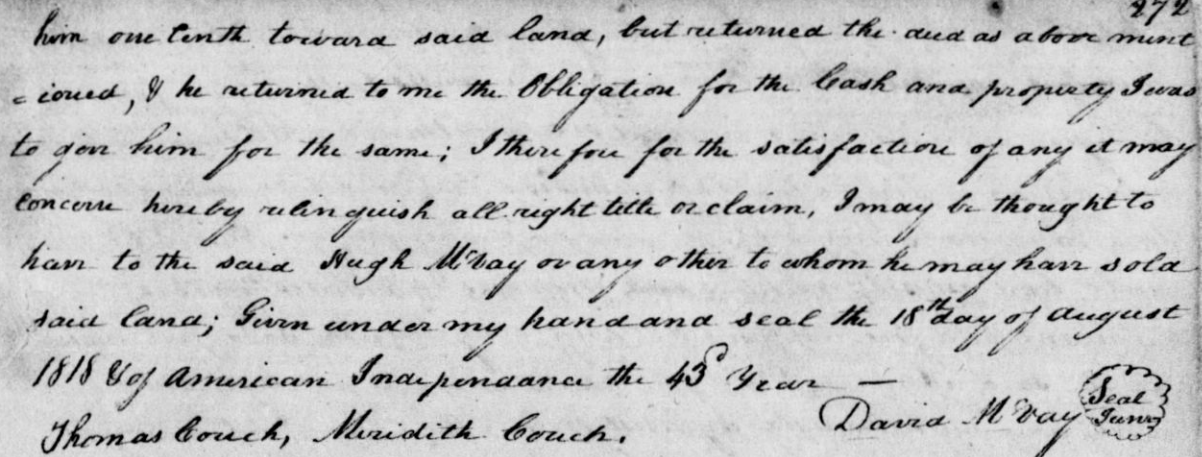 272
him one tenth toward said land, but returned the deed as above ment
=ioned, & he returned to me the Obligation for the Cash and property I was
to give him for the same; I therefore for the satisfaction of any it may
Concern hereby relinquish all right title or claim, I may be thought to
have to the said Hugh McVay or any other to whom he may have sold
said land; Given under my hand and seal the 18th day of August
1818 & of American Independance the 43d Year —
Thomas Couch, Meridith Couch. David McVay Seal
Junr